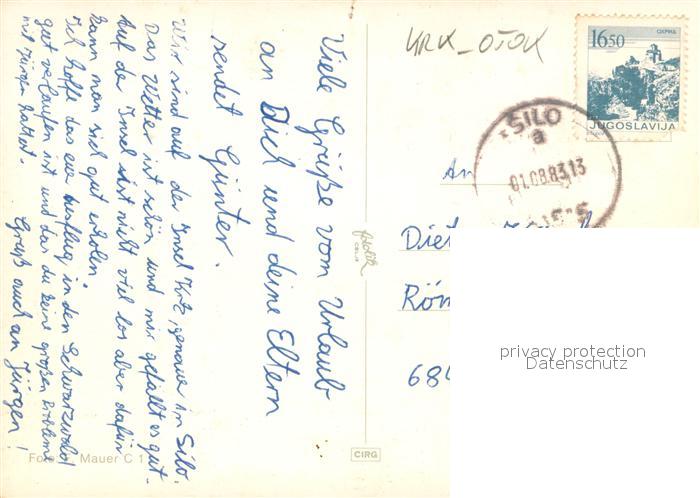 Viele Grüße vom Urlaub
an Dich und deine Eltern
sendet Günter.
Wir sind auf der Insel Krk, genauer in Silo.
Das Wetter ist schön und mir gefällt es gut.
Auf der Insel ist nicht viel los aber dafür
kann man sich gut erholen.
Ich hoffe das euer Ausflug in den Schwarzwald
gut verlaufen ist und das du keine großen Probleme
mit Jürgen hattest.
Gruß auch an Jürgen!
KRK_OTOK
OHRID
16.50
JUGOSLAVIJA
ŠILO
a
01.08.83.13
An
Diet
Röm
684
privacy protection
Datenschutz
CIRG
Foto Mauer C 1